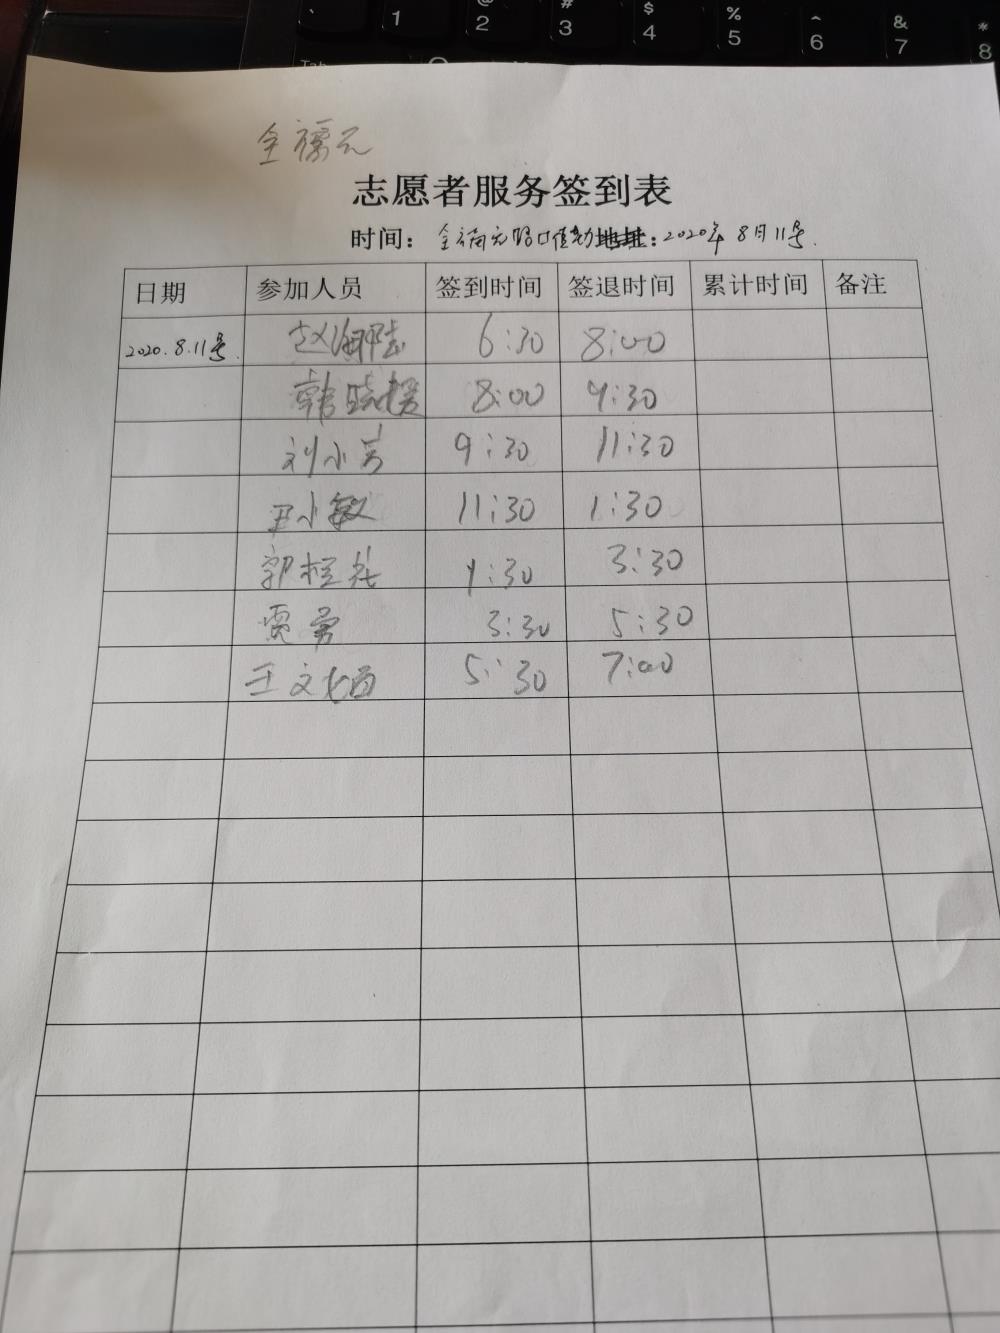 全福元
志愿者服务签到表
时间：全福元路口值勤地址：2020年8月11号.
日期 参加人员 签到时间 签退时间 累计时间 备注
2020.8.11号. 6:30 8:00
韩晓援 8:00 9:30
刘小芳 9:30 11:30
尹小敏 11:30 1:30
郭桂兰 1:30 3:30
贾芳 3:30 5:30
王文 5:30 7:00